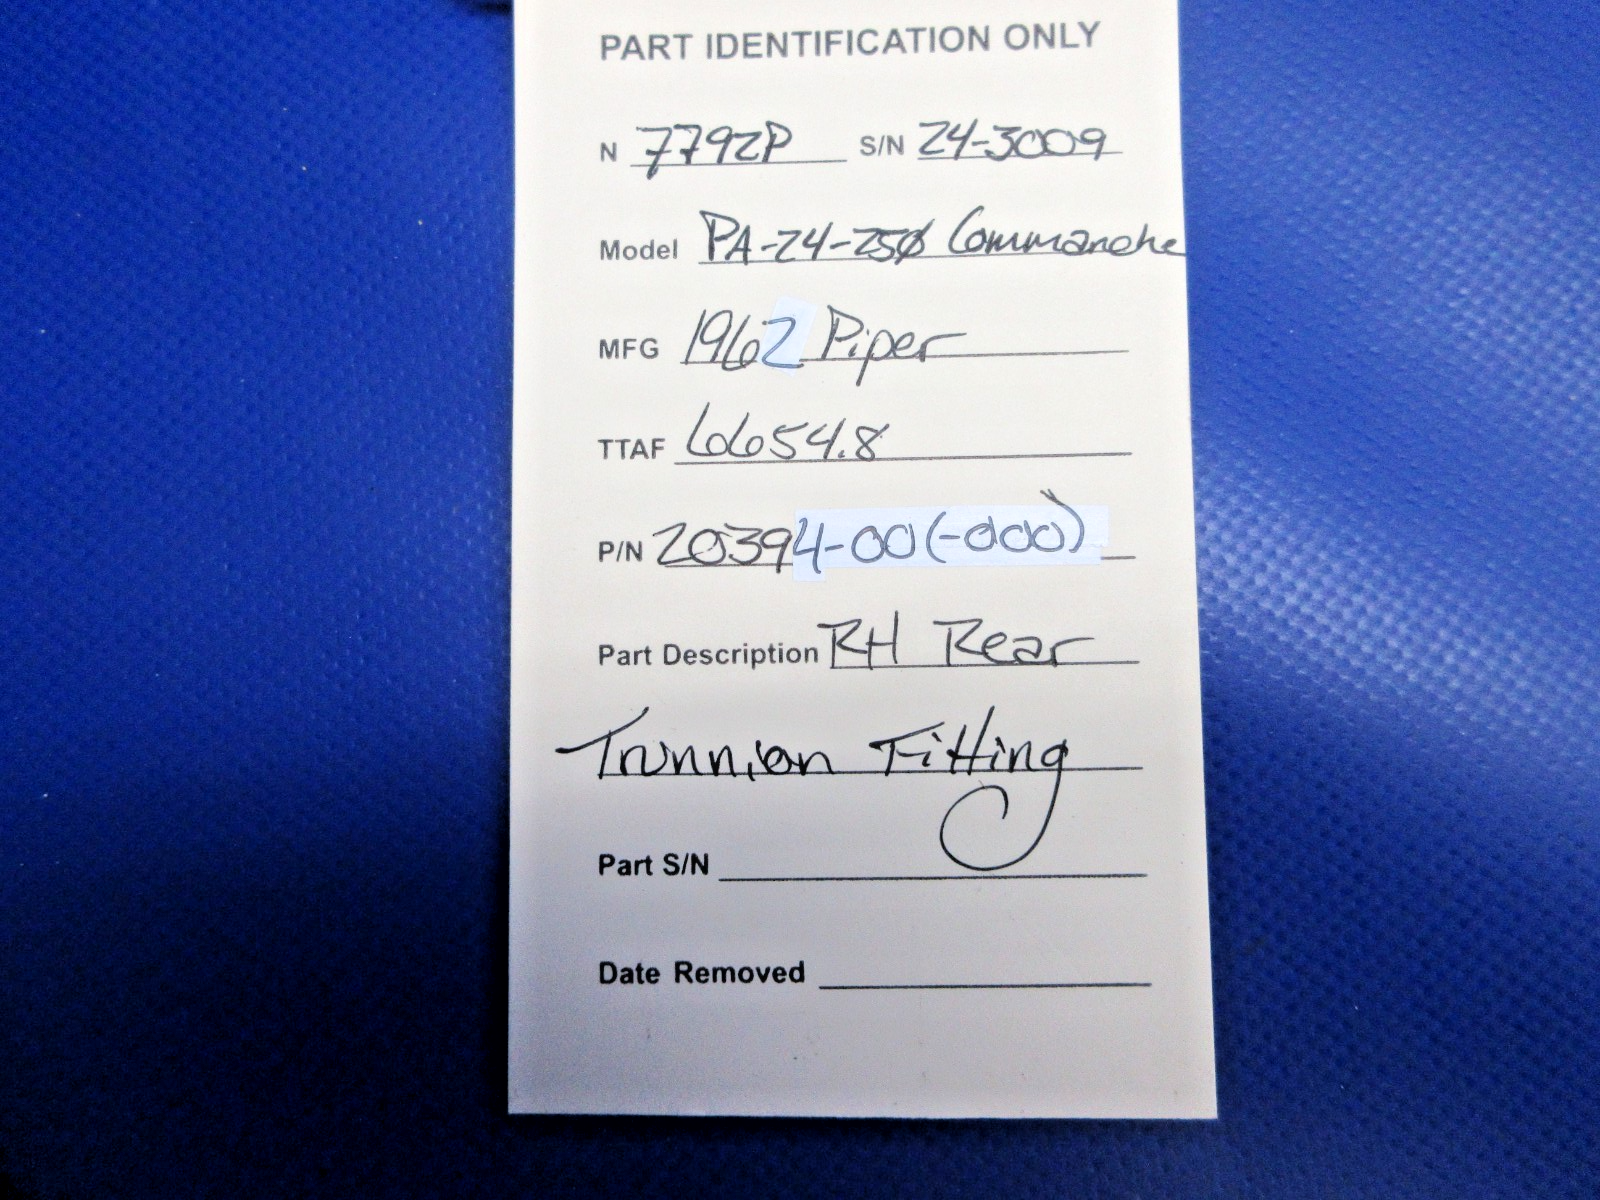 PART IDENTIFICATION ONLY
N 7792P S/N 24-3009
Model PA-24-250 Commanche
MFG 1962 Piper
TTAF 6654.8
P/N 20394-00(-000)
Part Description RH Rear
Trunnion Fitting
Part S/N
Date Removed